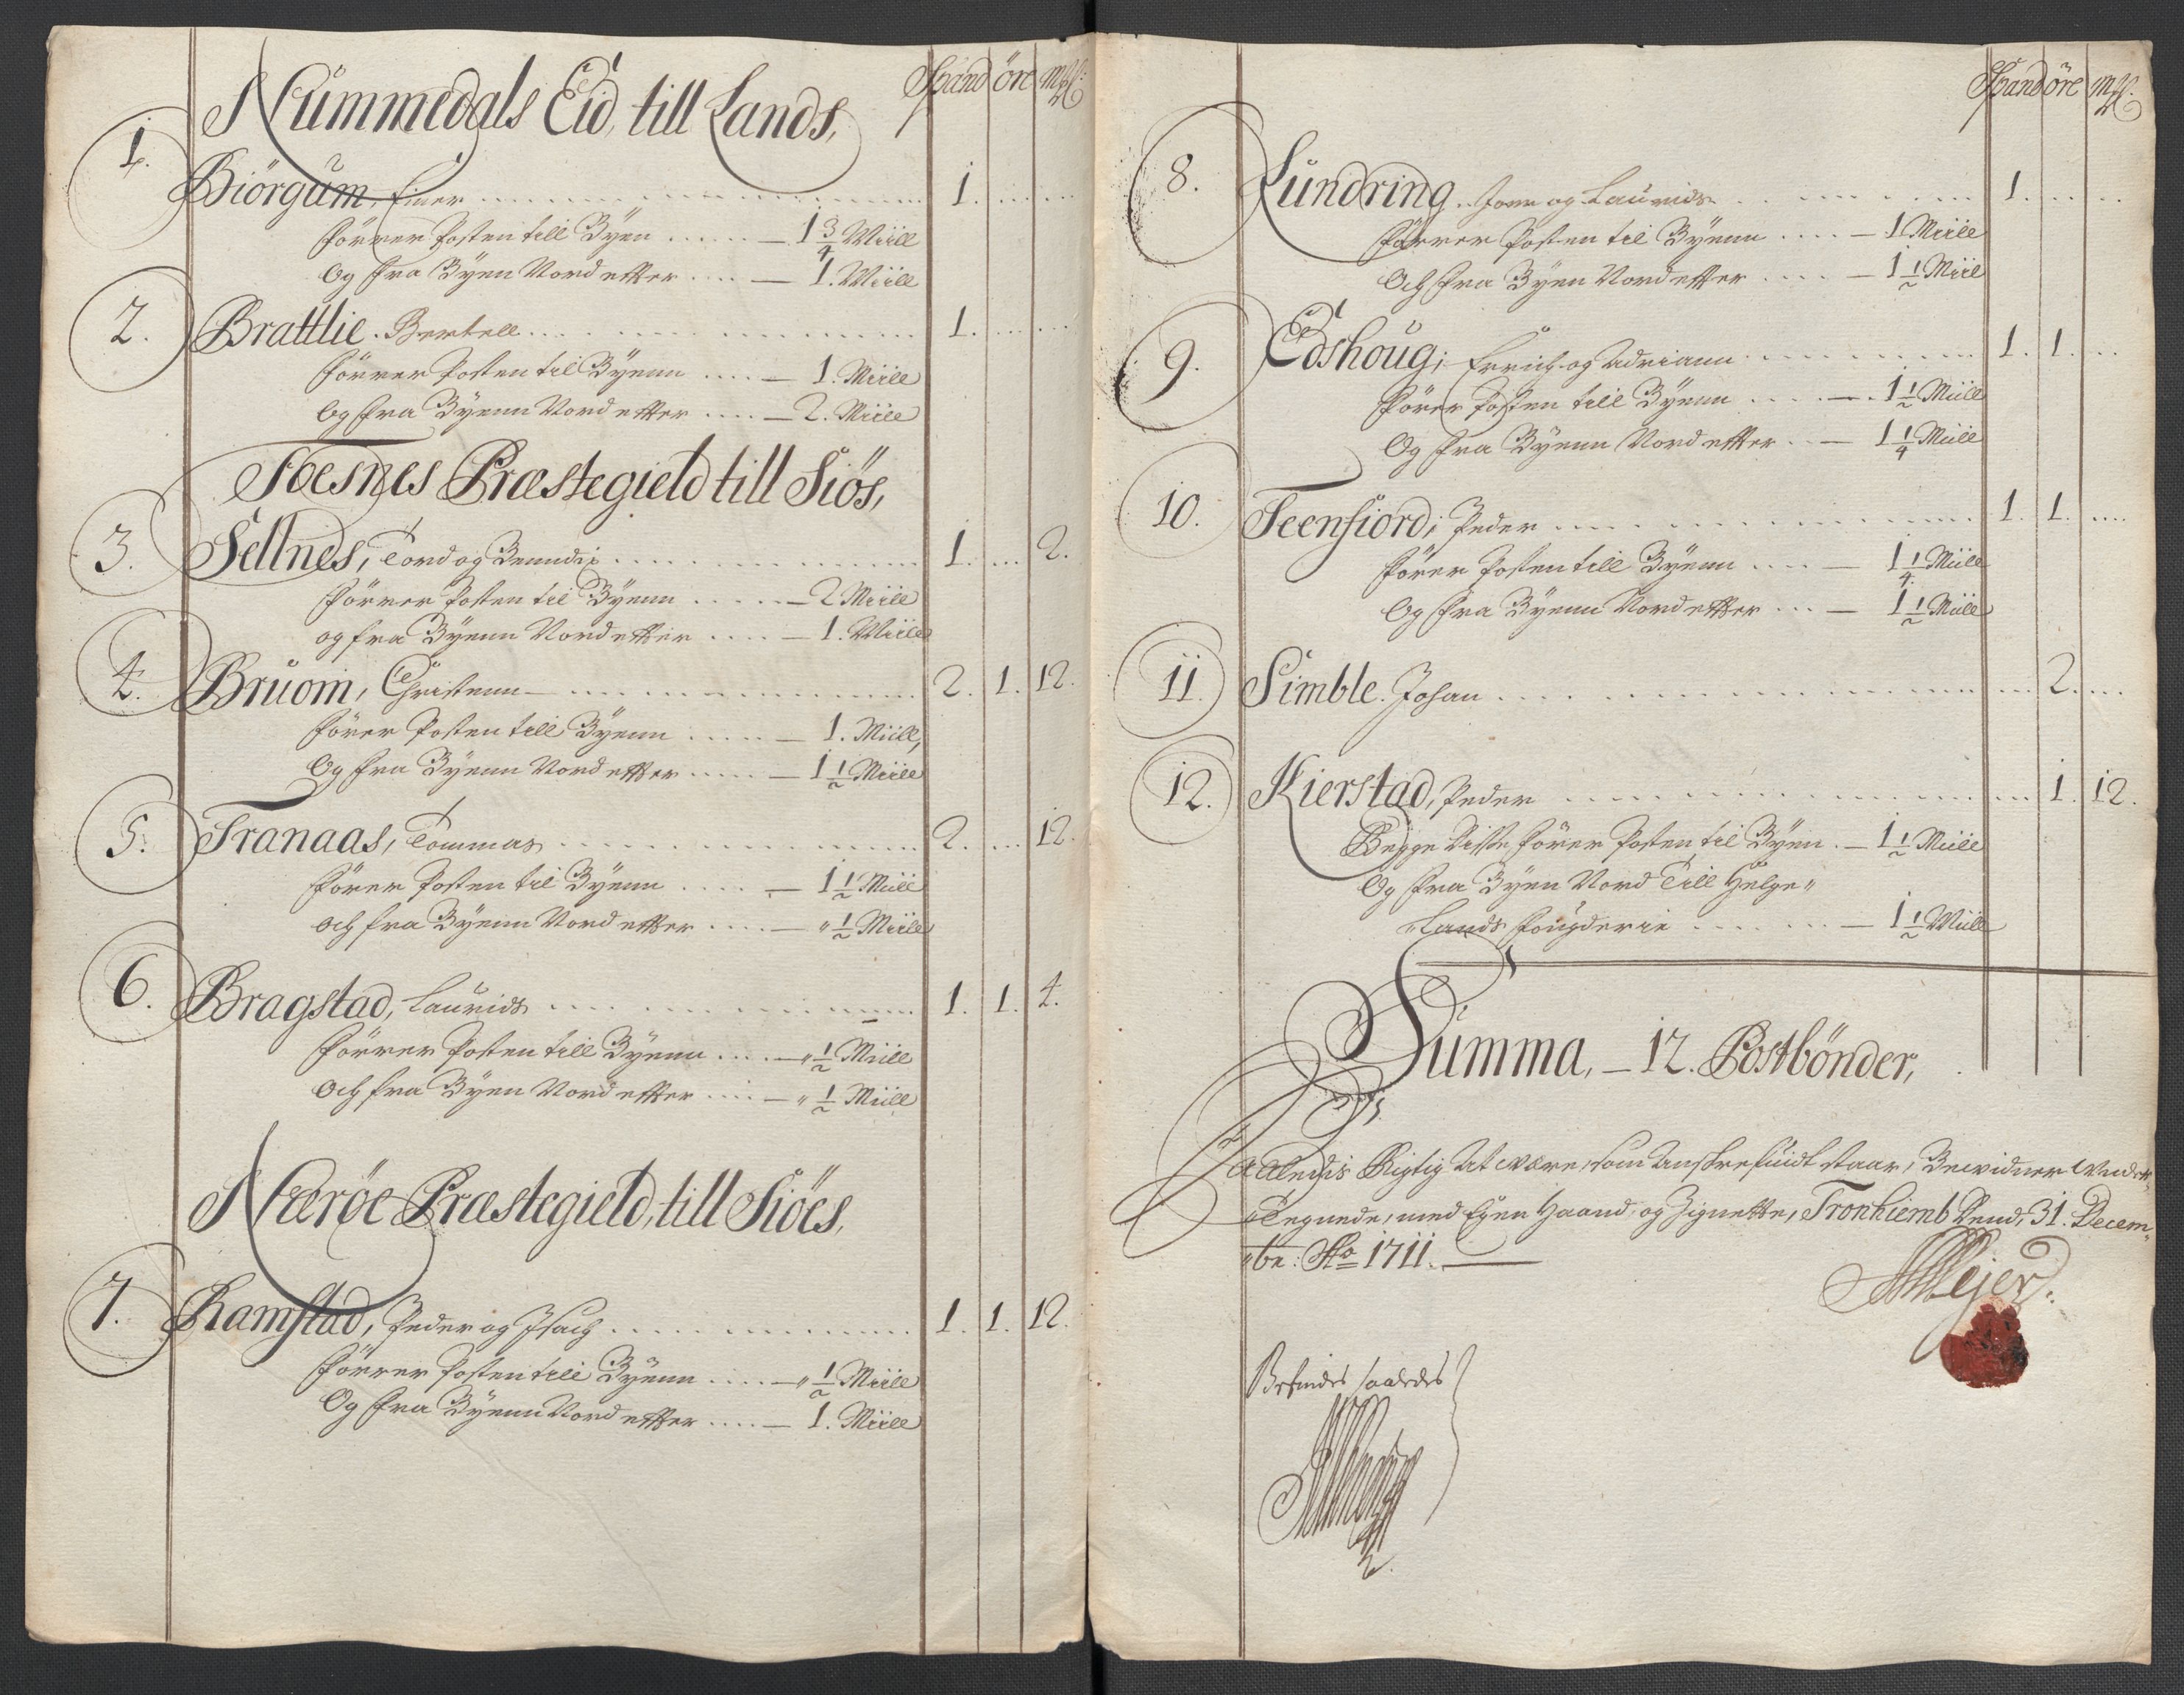 Spand öre m℔:
Nummedals Eid, till Lands,
1.
Biörgum, Einer 1.
förrer Posten till Byen — 1 3/4 Miill
Og fra Byen Nord etter — 1. Miill
2. Brattlie. Bertell 1.
förrer Posten til Byenn — 1. Miile
Og fra Byenn Nord etter — 2. Miile
Foesnes Præstegield till Siös,
3. Sellnes, Tord og Benndix 1. 2.
förrer Posten til Byenn — 2 Miile
og fra Byenn Nord etter — 1. Miile
4. Bruom, Christenn 2. 1. 12.
förer Posten till Byenn — 1. Miill,
Og fra Byenn Nord etter — 1 1/2 Miile
5. Tranaas, Tommas 2. 12.
förer Posten til Byenn — 1 1/2 Miill
och fra Byenn Nord etter — " 1/2 Miile
6. Bragstad, Laurids 1. 1. 4.
förrer Posten till Byenn — " 1/2 Miill
Och fra Byen Nord etter — " 1/2 Miill
Nærøe Præstegield, till Siöes,
7. Ramstad, Peder og Isach 1. 1. 12.
förrer Posten till Byenn — " 1/2 Miile
Og fra Byenn Nord etter — 1. Miile
Spand öre m℔:
8. Lundring. Jonn og Laurids 1.
förrer Posten til Byenn — 1 Miile
Och fra Byen Nord etter — 1 1/2 Miil
9. Edshoug; Errich og Adriann 1. 1.
förer Posten till Byenn — 1 1/2 Miill
Og fra Byenn Nord etter — 1 1/4 Miile
10. Teenfiord; Peder 1. 1.
förer Posten till Byenn — 1 1/4 Miile
Og fra Byenn Nord etter — 1 1/2 Miile
11. Simble. Johan 2.
12. Kierstad, Peder 1. 12.
Begge disse förer Posten til Byen — 1 1/2 Miile
Og fra Byen Nord Till Helge"
Lands fougderie — 1 1/2 Miill
Summa, — 12. Postbönder,
Saaledis Rigtig at være, som anskrefuidt staar, Bevidner Under"
Tegnede, med Egen Haand og Zignette, Tronhiemb Dend, 31. Decem"
"be: Ao 1711.
Mejer.
Befindes saaledes